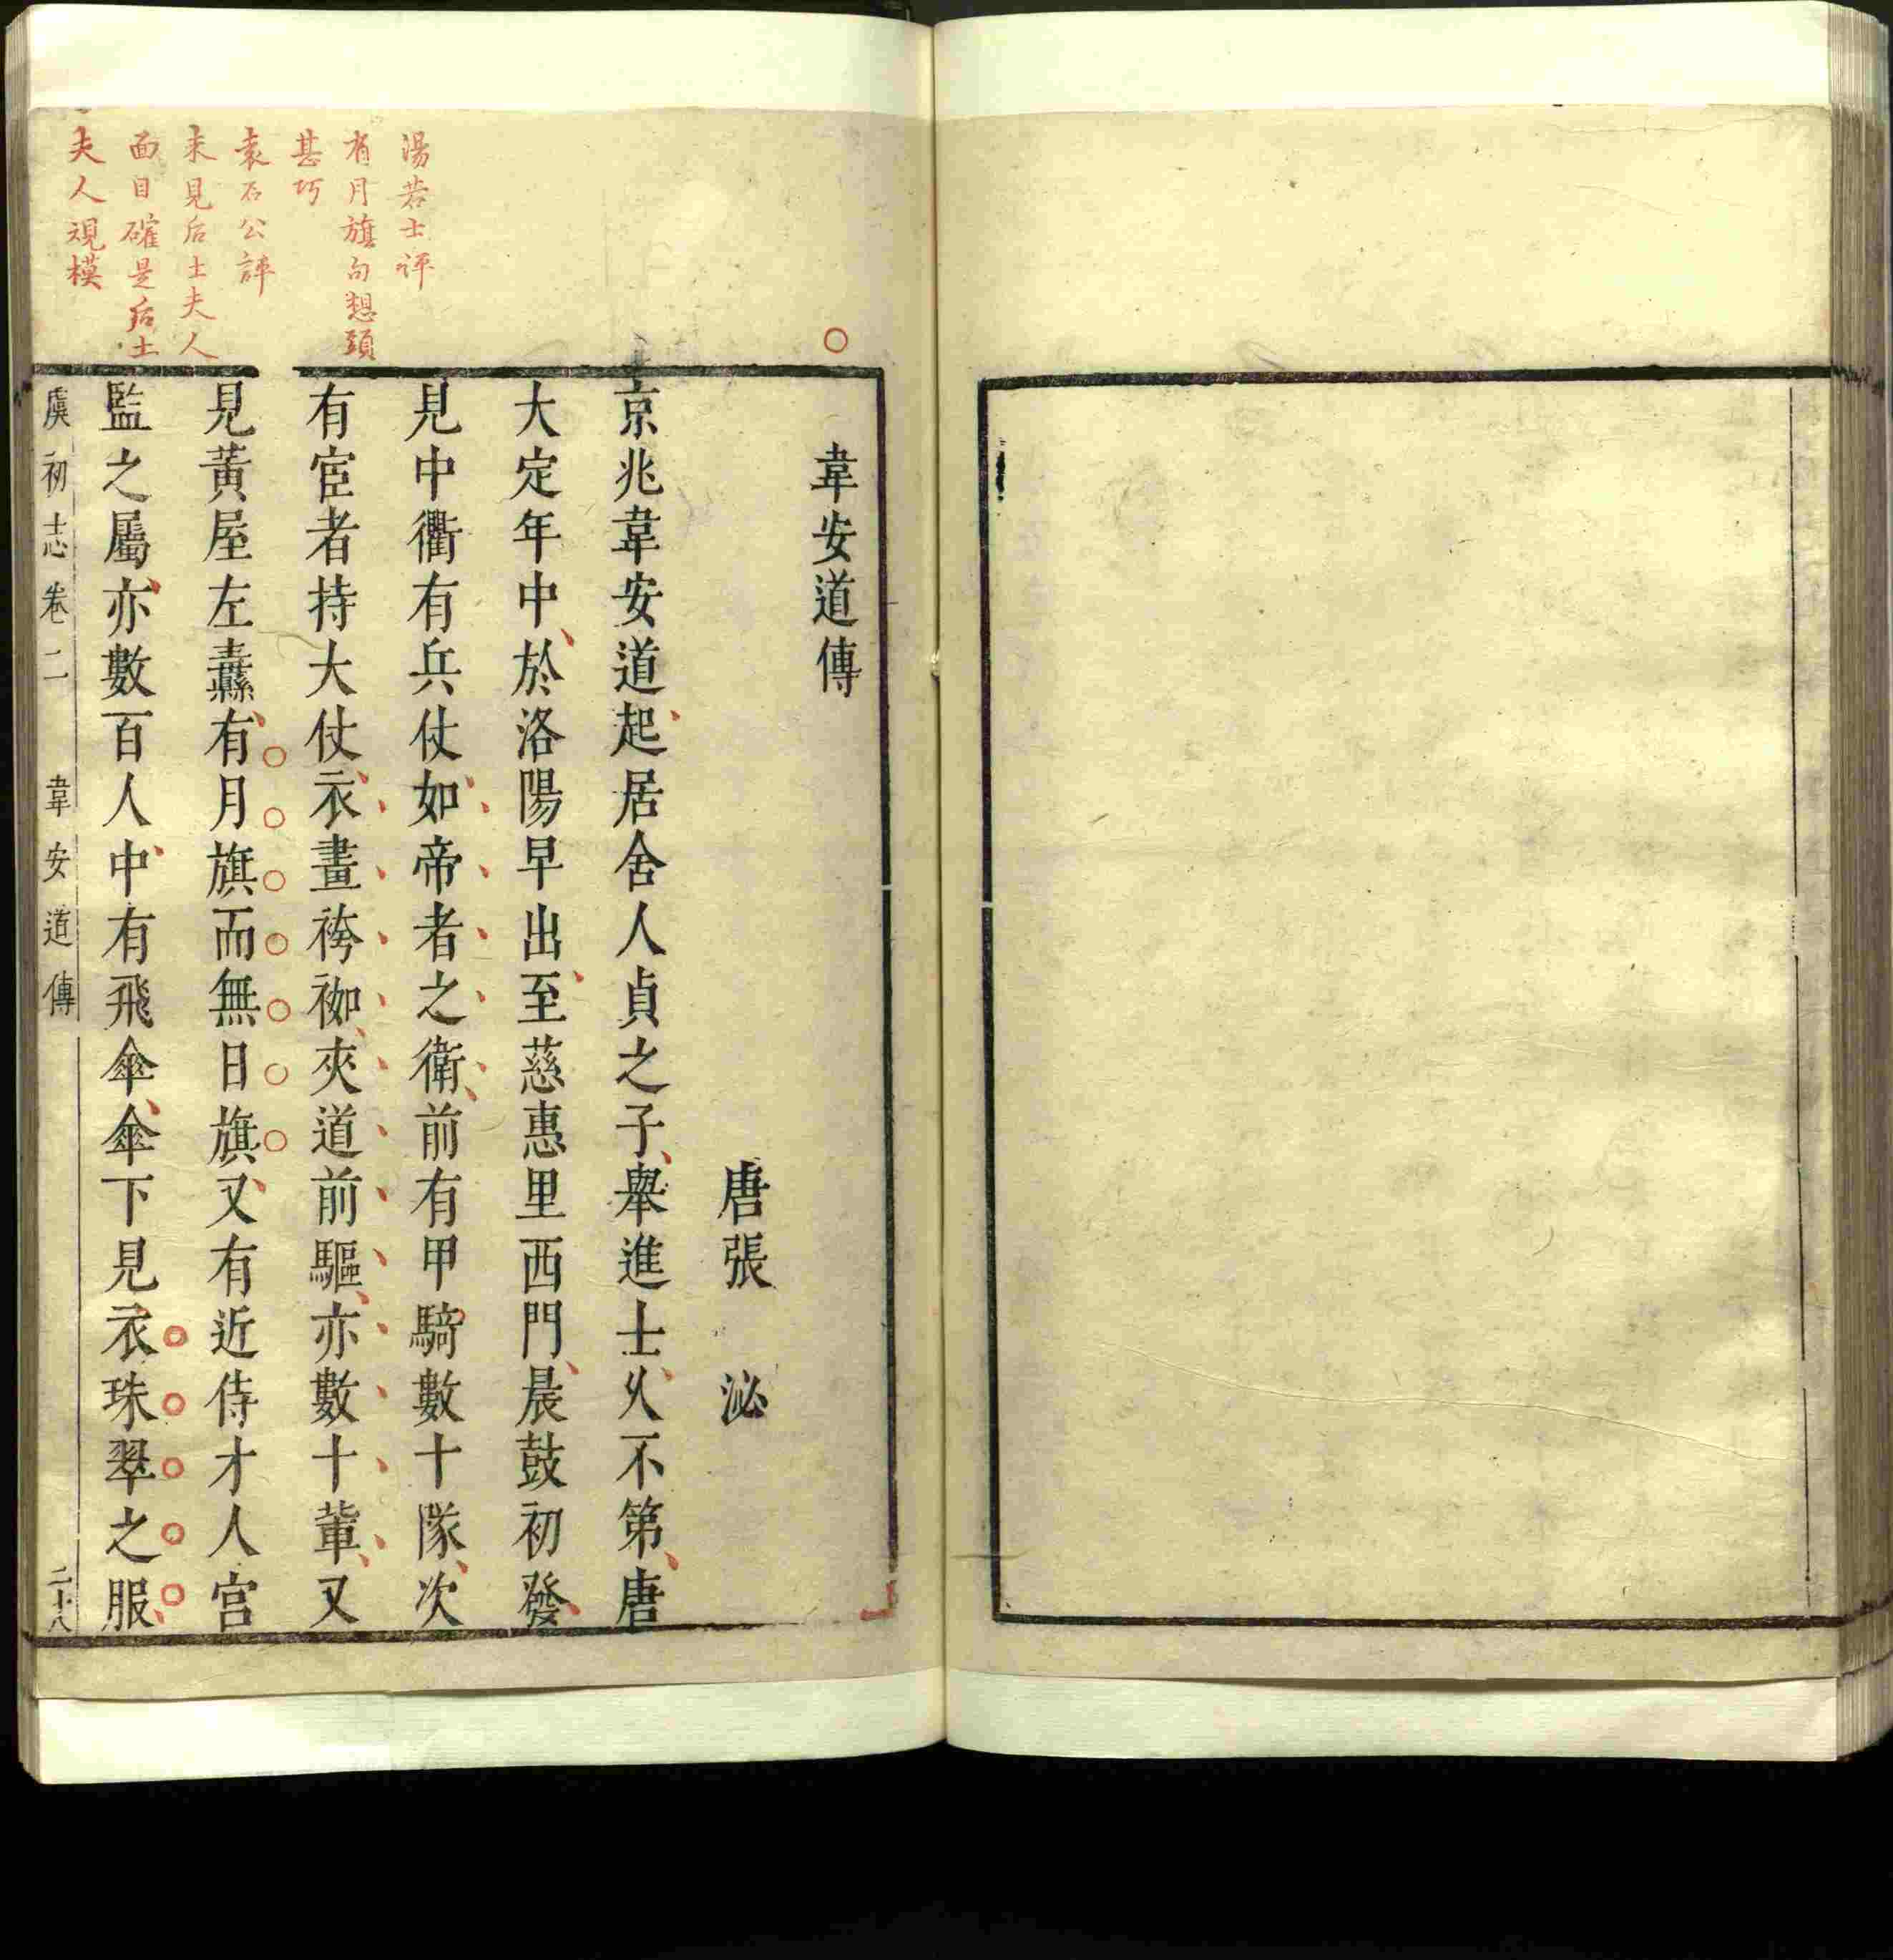 湯若士評
有月旗句想頭
甚巧
袁石公評
未見后土夫人
面目確是后土
夫人規模
韋安道傳
唐張泌
京兆韋安道起居舍人貞之子舉進士乆不第唐
大定年中於洛陽早出至慈惠里西門晨鼓初發
見中衢有兵仗如帝者之衛前有甲騎數十隊次
有宦者持大仗衣畫袴袽夾道前驅亦數十輩又
見黃屋左纛有月旗而無日旗又有近侍才人宮
監之屬亦數百人中有飛傘傘下見衣珠翠之服
虞初志卷二 韋安道傳 二十八